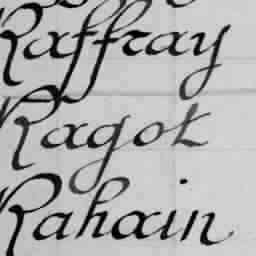 Raffray
Ragot
Rahain